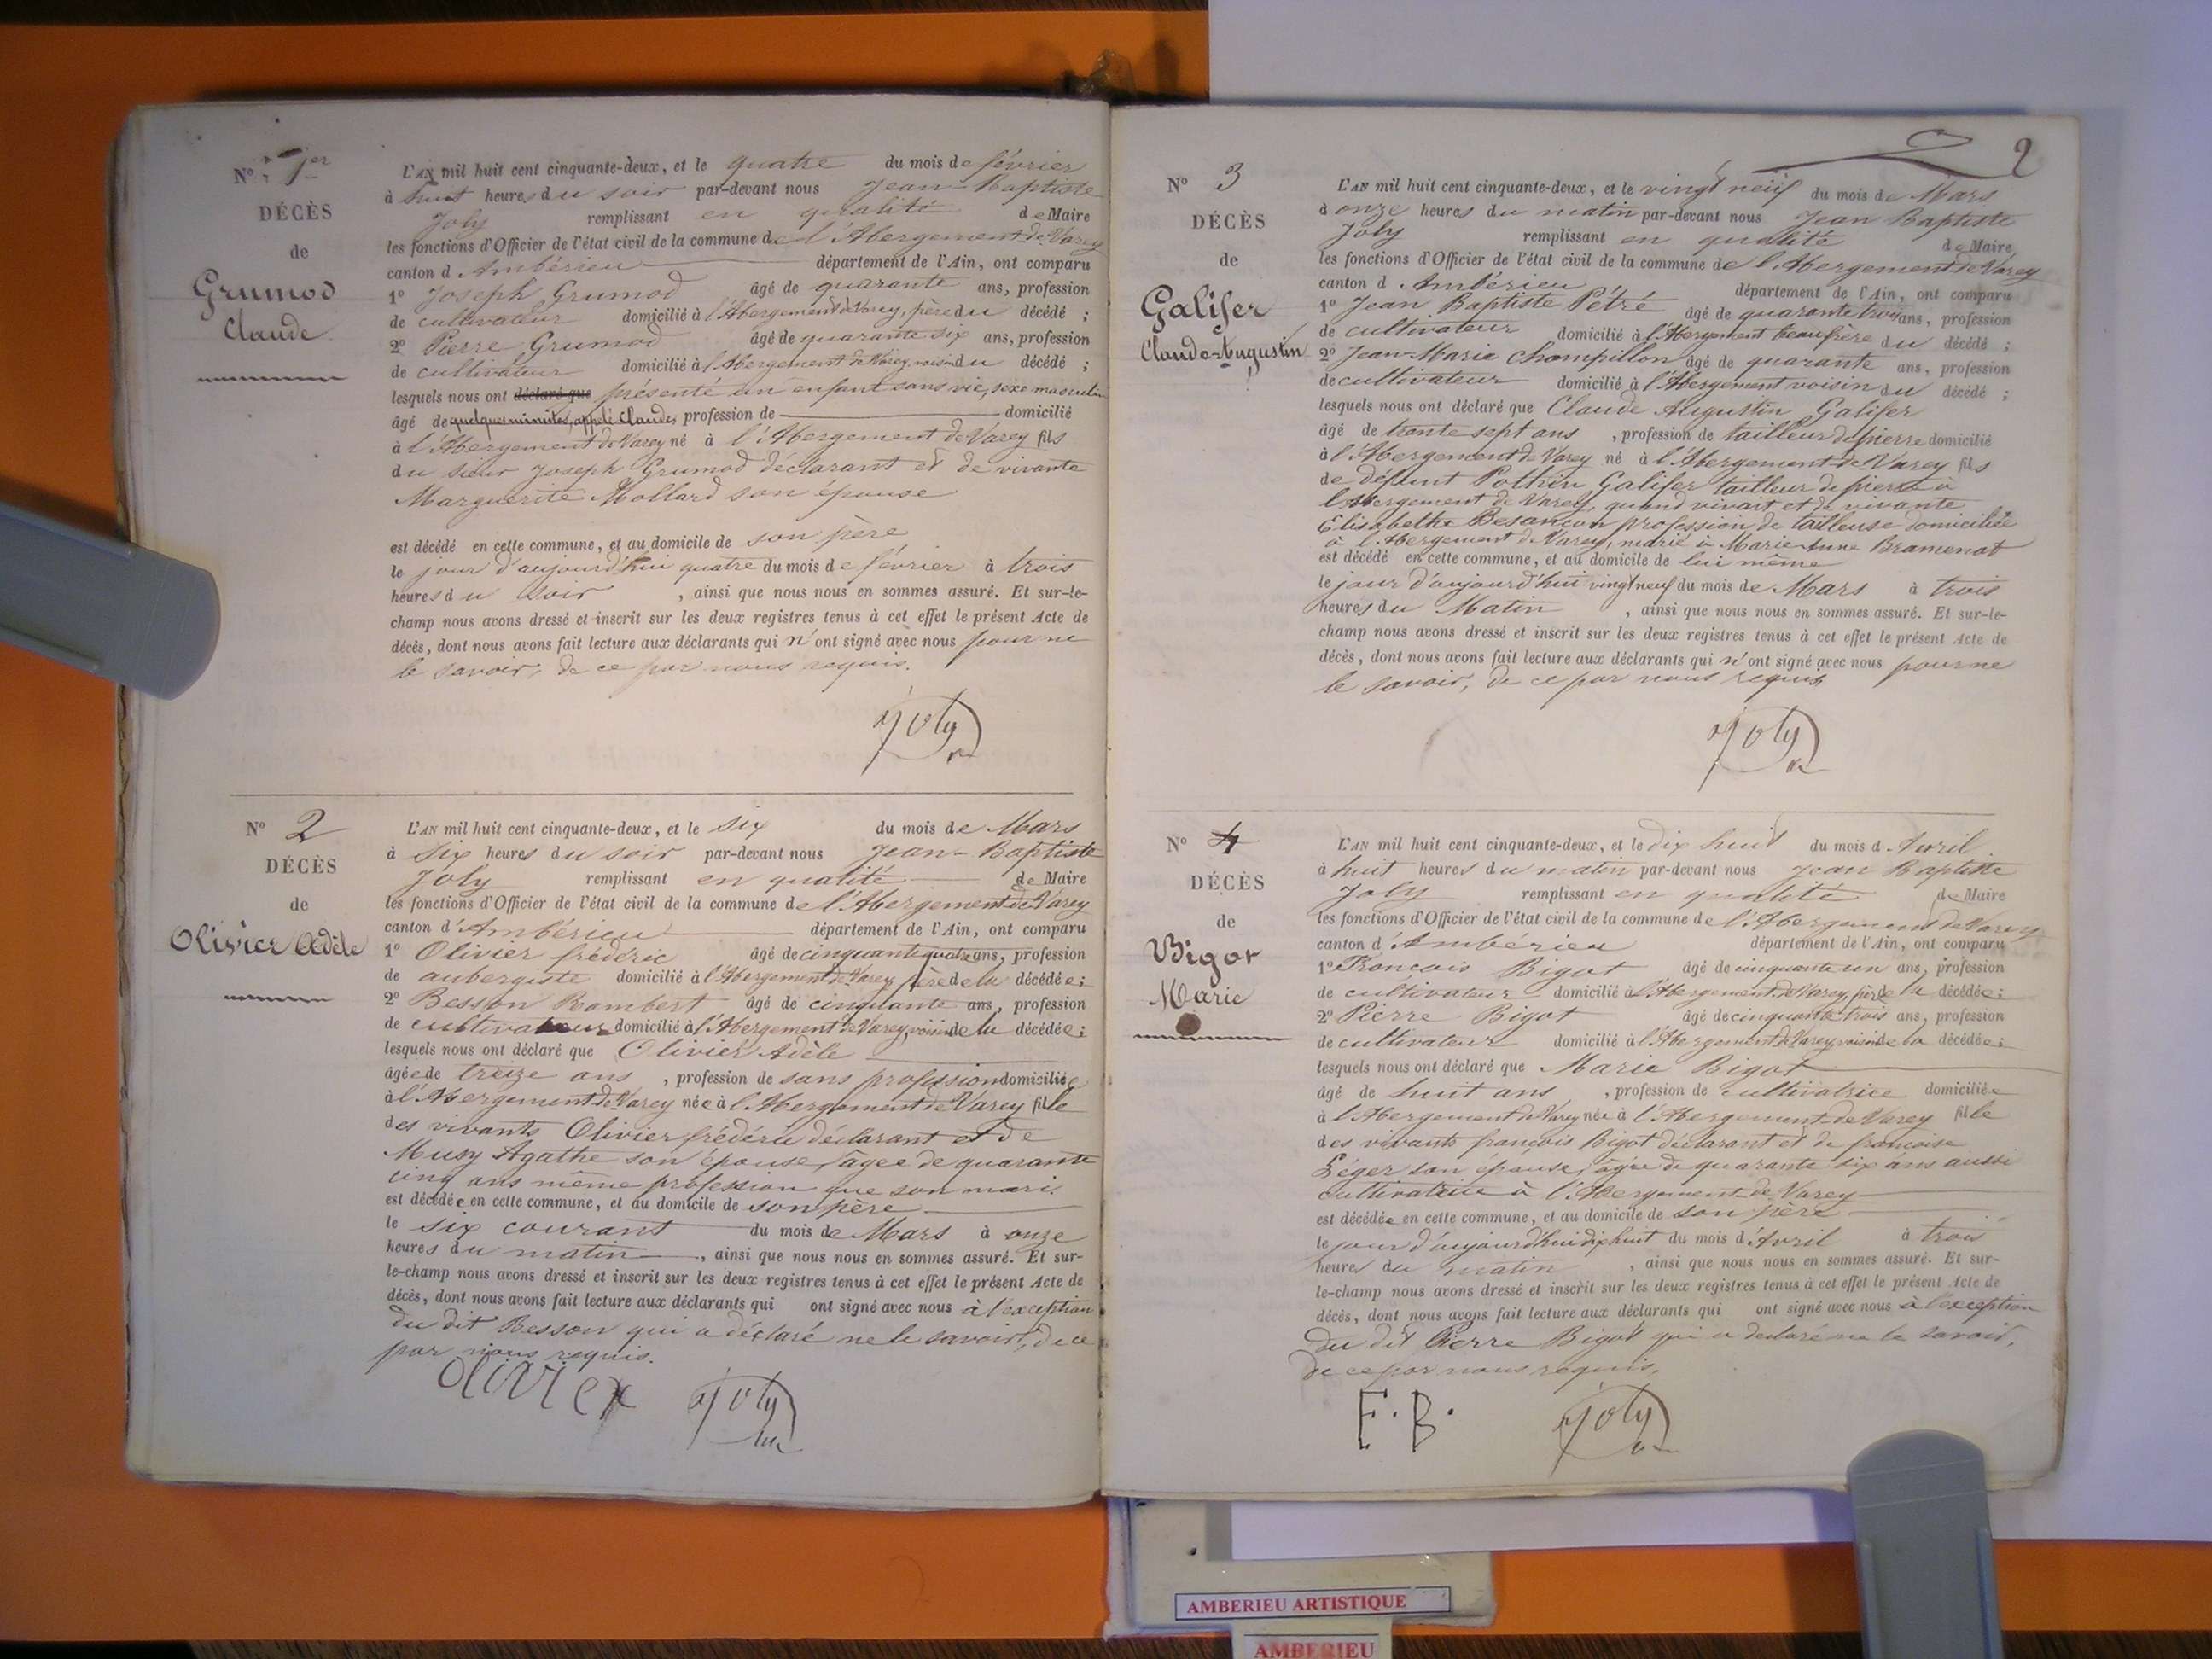 Nº 1er
DÉCÈS
de
Grumod
Claude
L'AN mil huit cent cinquante-deux, et le quatre du mois de février
à huit heures du soir par-devant nous Jean-Baptiste
Joly remplissant en qualité de Maire
les fonctions d'Officier de l'état civil de la commune de l'Abergement de Varey
canton d'Ambérieu département de l'Ain, ont comparu
1º Joseph Grumod âgé de quarante ans, profession
de cultivateur domicilié à l'Abergement de Varey, père du décédé ;
2º Pierre Grumod âgé de quarante six ans, profession
de cultivateur domicilié à l'Abergement de Varey, voisin du décédé ;
lesquels nous ont déclaré que présenté un enfant sans vie, sexe masculin
âgé de quelques minutes, appelé Claude, profession de domicilié
à l'Abergement de Varey né à l'Abergement de Varey fils
du sieur Joseph Grumod déclarant et de vivante
Marguerite Mollard son épouse
est décédé en cette commune, et au domicile de son père
le jour d'aujourd'hui quatre du mois de février à trois
heures du soir, ainsi que nous nous en sommes assuré. Et sur-le-
champ nous avons dressé et inscrit sur les deux registres tenus à cet effet le présent Acte de
décès, dont nous avons fait lecture aux déclarants qui n'ont signé avec nous pour ne
le savoir, de ce par nous requis.
Joly
Nº 2
DÉCÈS
de
Olivier Adèle
L'AN mil huit cent cinquante-deux, et le six du mois de Mars
à six heures du soir par-devant nous Jean-Baptiste
Joly remplissant en qualité de Maire
les fonctions d'Officier de l'état civil de la commune de l'Abergement de Varey
canton d'Ambérieu département de l'Ain, ont comparu
1º Olivier frédéric âgé de cinquante quatre ans, profession
de aubergiste domicilié à l'Abergement de Varey père de la décédée ;
2º Besson Rambert âgé de cinquante ans, profession
de cultivateur domicilié à l'Abergement de Varey, voisin de la décédée ;
lesquels nous ont déclaré que Olivier Adèle
âgée de treize ans, profession de sans profession domiciliée
à l'Abergement de Varey née à l'Abergement de Varey fille
des vivants Olivier frédéric déclarant et de
Musy Agathe son épouse, âgée de quarante
cinq ans même profession que son mari.
est décédée en cette commune, et au domicile de son père
le six courant du mois de Mars à onze
heures du matin, ainsi que nous nous en sommes assuré. Et sur-
le-champ nous avons dressé et inscrit sur les deux registres tenus à cet effet le présent Acte de
décès, dont nous avons fait lecture aux déclarants qui ont signé avec nous à l'exception
du dit Besson qui a déclaré ne le savoir, de ce
par nous requis.
Olivier Joly
2
Nº 3
DÉCÈS
de
Galifer
Claude-Augustin
L'AN mil huit cent cinquante-deux, et le vingt neuf du mois de Mars
à onze heures du matin par-devant nous Jean Baptiste
Joly remplissant en qualité de Maire
les fonctions d'Officier de l'état civil de la commune de l'Abergement de Varey
canton d Ambérieu département de l'Ain, ont comparu
1º Jean Baptiste Pétré âgé de quarante trois ans, profession
de cultivateur domicilié à l'Abergement beaufrère du décédé ;
2º Jean-Marie Champillon âgé de quarante ans, profession
de cultivateur domicilié à l'Abergement voisin du décédé ;
lesquels nous ont déclaré que Claude Augustin Galifer
âgé de trente sept ans, profession de tailleur de pierre domicilié
à l'Abergement de Varey né à l'Abergement de Varey fils
de défunt Pothin Galifer tailleur de pierre à
l'Abergement de Varey, quand vivait et de vivante
Elisabethe Besançon profession de tailleuse domiciliée
à l'Abergement de Varey, marié à Marie Anne Bramenot
est décédé en cette commune, et au domicile de lui même
le jour d'aujourd'hui vingt neuf du mois de Mars à trois
heures du Matin, ainsi que nous nous en sommes assuré. Et sur-le-
champ nous avons dressé et inscrit sur les deux registres tenus à cet effet le présent Acte de
décès, dont nous avons fait lecture aux déclarants qui n'ont signé avec nous pour ne
le savoir, de ce par nous requis
Joly
Nº 4
DÉCÈS
de
Bigot
Marie
L'AN mil huit cent cinquante-deux, et le dix huit du mois d Avril
à huit heures du matin par-devant nous Jean Baptiste
Joly remplissant en qualité de Maire
les fonctions d'Officier de l'état civil de la commune de l'Abergement de Varey
canton d'Ambérieu département de l'Ain, ont comparu
1º François Bigot âgé de cinquante un ans, profession
de cultivateur domicilié à l'Abergement de Varey, père de la décédée ;
2º Pierre Bigot âgé de cinquante trois ans, profession
de cultivateur domicilié à l'Abergement de Varey voisin de la décédée ;
lesquels nous ont déclaré que Marie Bigot
âgé de huit ans, profession de cultivatrice domiciliée
à l'Abergement de Varey née à l'Abergement de Varey fille
des vivants françois Bigot déclarant et de françoise
Léger son épouse, âgée de quarante six ans aussi
cultivatrice à l'Abergement de Varey
est décédée en cette commune, et au domicile de son père
le jour d'aujourd'hui dix huit du mois d'Avril à trois
heures du matin, ainsi que nous nous en sommes assuré. Et sur-
le-champ nous avons dressé et inscrit sur les deux registres tenus à cet effet le présent Acte de
décès, dont nous avons fait lecture aux déclarants qui ont signé avec nous à l'exception
du dit Pierre Bigot qui a déclaré ne le savoir,
de ce par nous requis,
F.B. Joly
AMBERIEU ARTISTIQUE
AMBERIEU